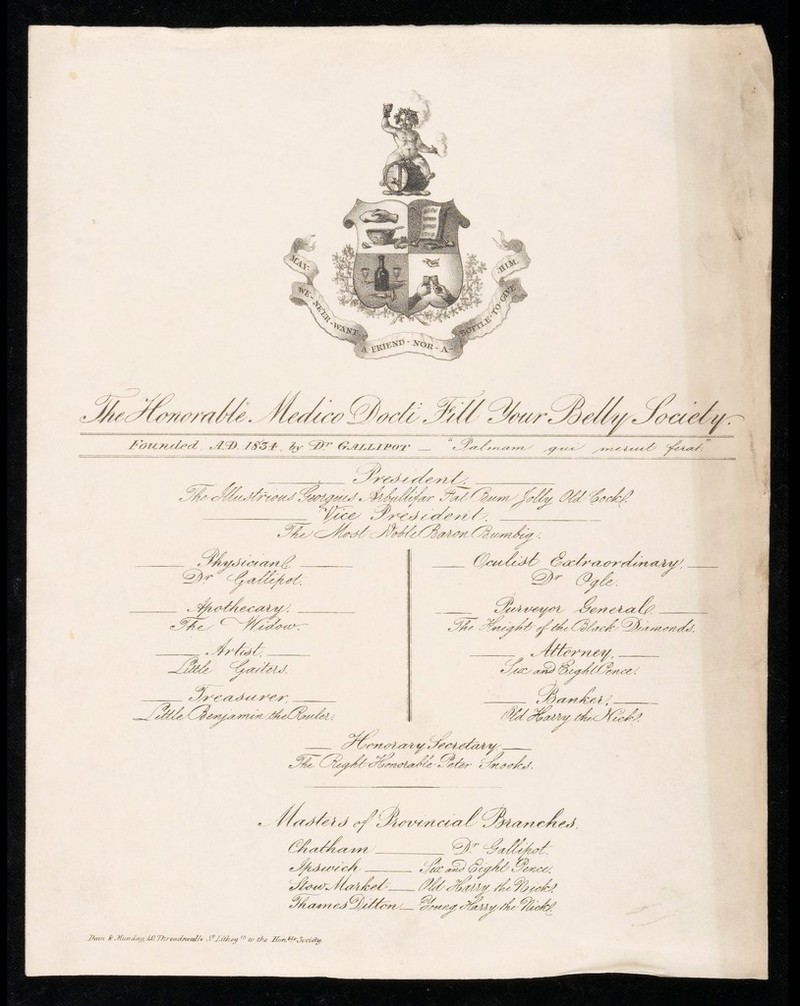 MAY-
WE-NE'ER-WANT
A-FRIEND-NOR-A-
BOTTLE-TO-GIVE
HIM.
The Honorable Medico Docti Fill Your Belly Society.
Founded, A.D. 1834, by Dr GALLIPOT — "Palmam qui meruit ferat"
President.
The Illustrious Georgius Fat Bum Jolly Old Cock!.
Vice President.
The Most Noble Baron Bumbig.
Physician!
Dr Gallipot.
Apothecary.
The Widow.
Artist.
Little Gaiters.
Treasurer,
Little Benjamin the Ruler.
Oculist Extraordinary.
Dr Ogle.
Purveyor General.
The Knight of the Black Diamonds.
Attorney.
Six and Eight Pence.
Banker.
Old Harry the Nick!.
Honorary Secretary
The Right Honorable Peter Snooks.
Masters of Provincial Branches.
Chatham Dr Gallipot.
Ipswich Six and Eight Pence.
Stow Market Old Harry the Nick!
Thames Ditton Young Harry the Nick!.
Threadneedle St. Lithogrs to the Honble Society.